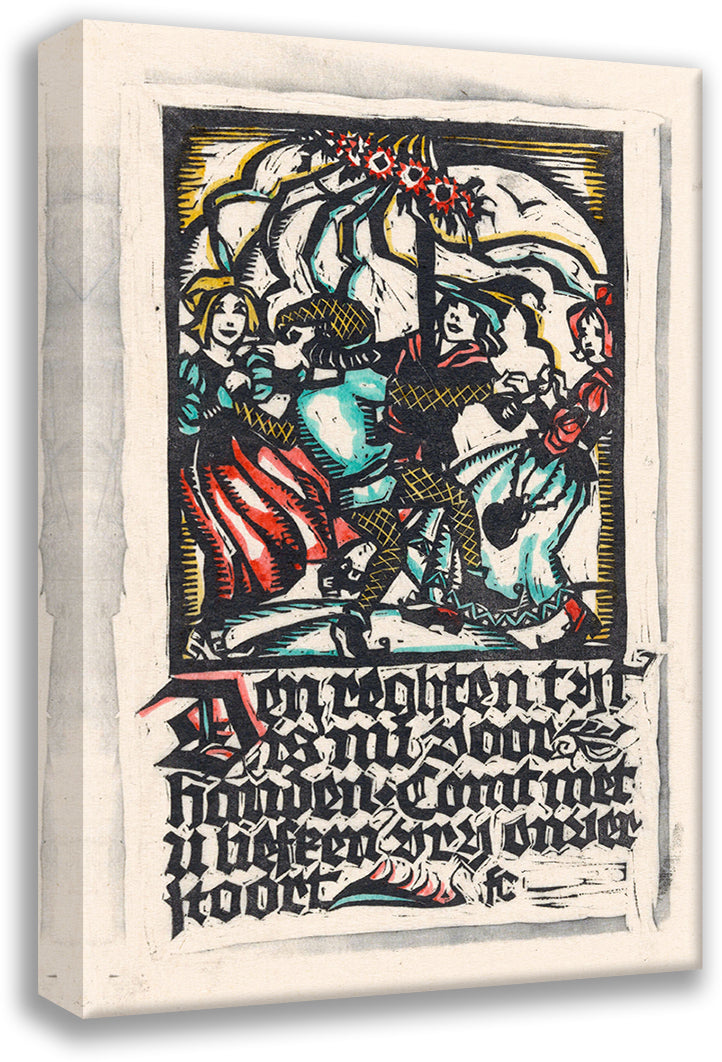 Den reghten tijt
is nu voor
handen · Comt met
u liefken vry onver
stoort fc